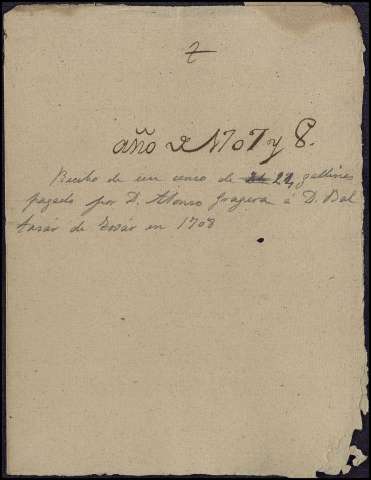 7
año de 1707 y 8.
Recibo de un censo de 22 gallinas
pagado por D. Alonso Gragera á D. Bal
tasár de Tosár en 1708